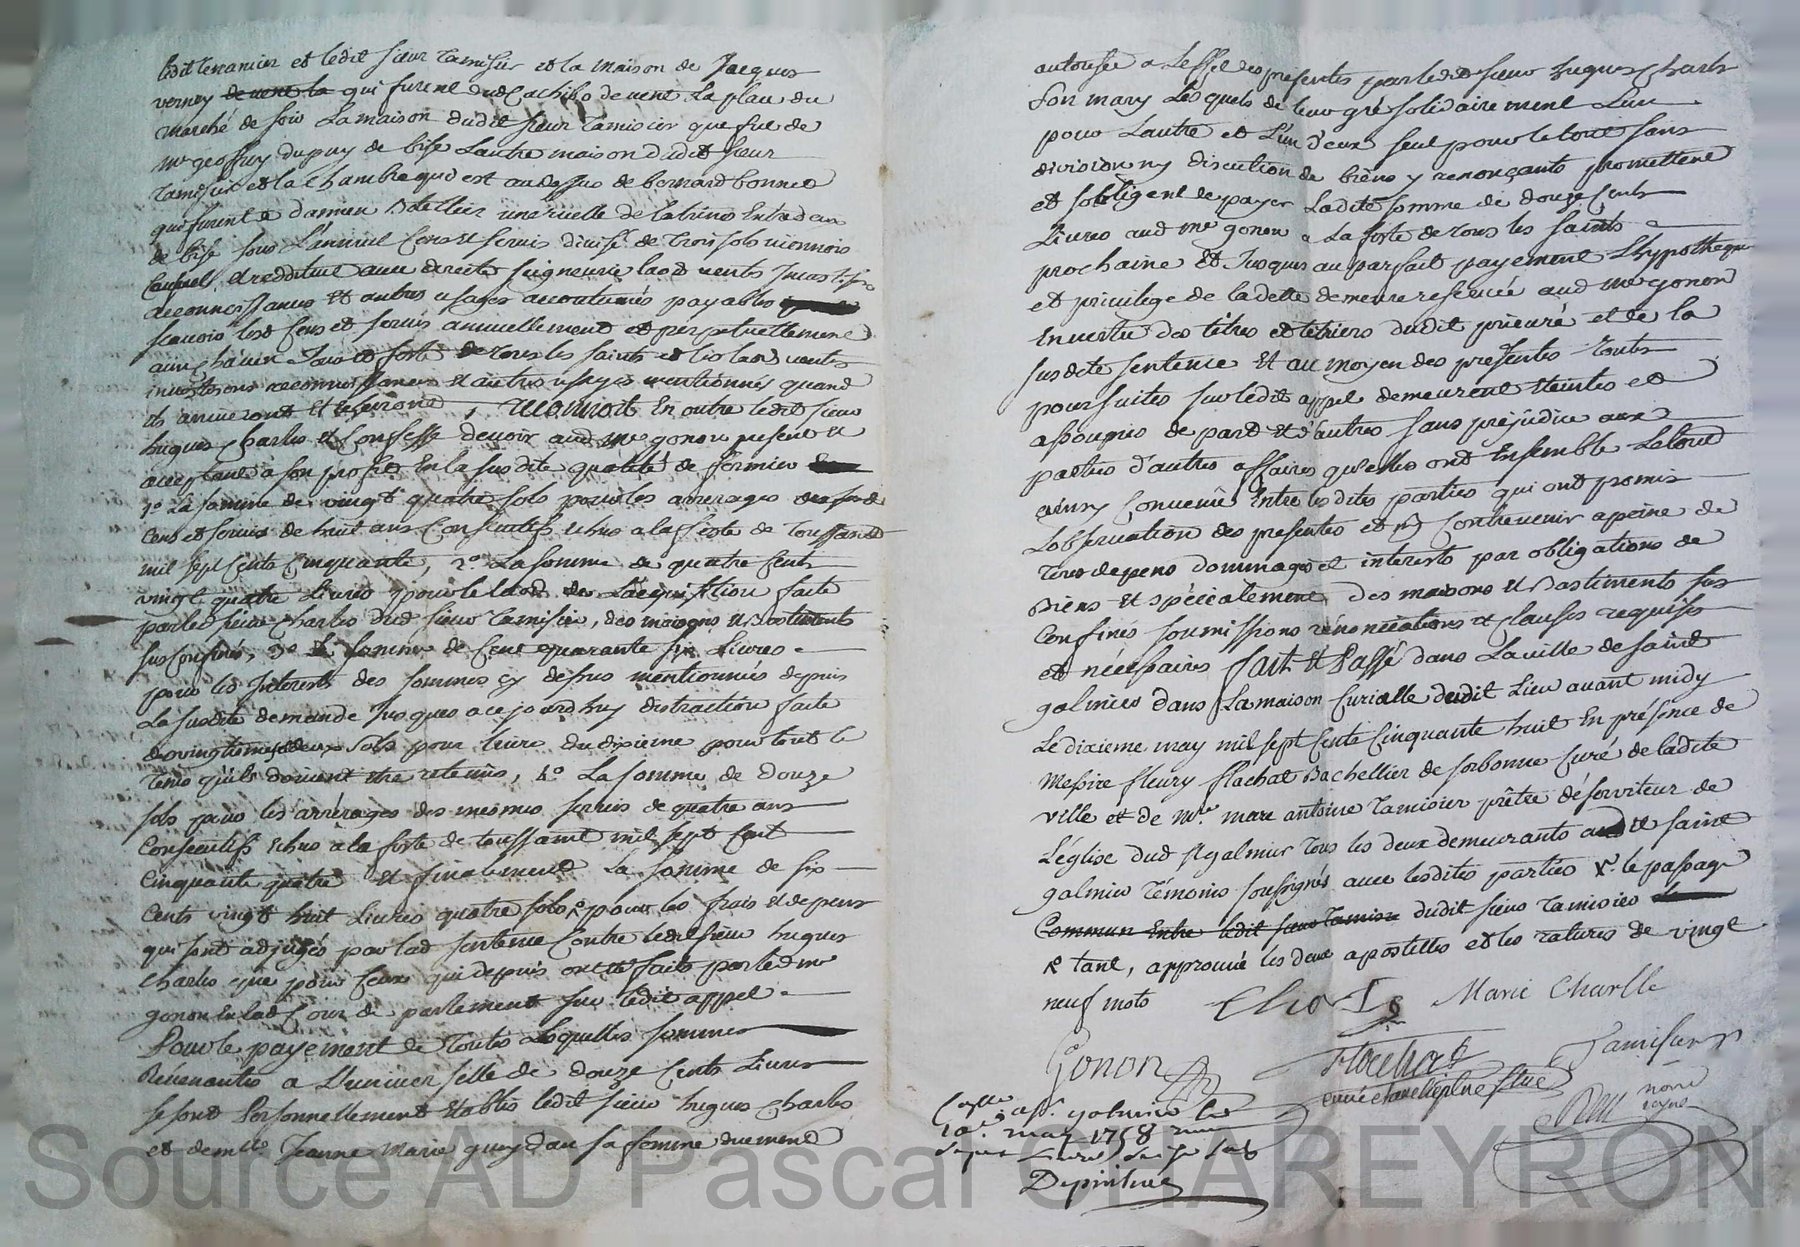 ledit tenancier et ledit sieur Tamisier et la maison de Jacques
verney de vent la qui furent dud Cachibo de vent la place du
marché de soir La maison dudit sieur Tamisier que fut de
Mr geoffroy dupuy de bise Lautre maison dudit sieur
Tamisier et la chambre qui est au dessus de bernard bonnet
qui furent a damien Batellier une ruelle de latrines Entre deux
de bise sous L'annuel Cens et servis divisé de trois sols viennois
Censuel et reddituel avec directe seigneurie laods ventes Investisons
reconnoissances et autres usages accoutumés payables
scavoir lesd Cens et servis annuellement et perpetuellement
a un chacun Jour et feste de tous les saints et les laods ventes
investisons reconnoissances et autres usages mentionnés quand
ils arriveront et escheront, reconnoit En outre ledit sieur
hugues Charles et Confesse devoir aud Mr gonon present et
acceptant à son profit En la susdite qualité de fermier
1o La somme de vingt quatre sols pour les arrerages
Cens et servis de huit ans Consecutifs Echus a la feste de Toussaint
mil sept Cents Cinquante, 2o La somme de quatre Cents
vingt quatre Livres pour le laod de Lacquisition faite
par led sieur Charles dud sieur Tamisier, des maisons et bastiments
sus Confinés, 3o la somme de Cent quarante six Livres
pour les Interests des sommes cy dessus mentionnées depuis
La susdite demande Jusques a cejourdhuy distraction faite
de vingtiemes et deux sols pour livre du dixieme pour tout le
tems qu'ils doivent etre retenus, 4o La somme de douze
sols pour les arrérages des mesmes servis de quatre ans
Consecutifs Echus a la feste de toussaint mil sept Cent
Cinquante quatre et finalement La somme de six
Cents vingt huit Livres quatre sols pour les frais et depens
qui sont adjugés par lad sentence Contre ledit sieur hugues
Charles que pour Ceux qui depuis ont été faits par led Mr
gonon En lad Cour de parlement sur ledit appel
Pour le payement de Toutes Lesquelles sommes
Revenantes a L'universelle de douze Cents Livres
se sont Personnellement Etablis ledit sieur hugues Charles
et demlle Jeanne Marie sa femme duement
autorisée a L'effet des presentes par ledit sieur hugues Charles
son mary Lesquels de leur gré solidairement L'un
pour Lautre et L'un d'eux seul pour le tout sans
division ny discution de biens y renonçants promettent
et sobligent de payer Ladite somme de douze Cents
Livres aud Mr gonon a La feste de tous les saints
prochaine et Jusques au parfait payement L'hypotheque
et privilege de la dette demeure reservée aud Mr gonon
En vertu des titres et terriers dudit prieuré et de la
susdite sentence Et au moyen des presentes toutes
poursuites sur ledit appel demeurent éteintes et
assoupies de part et d'autres sans préjudice aux
parties d'autres affaires qu'elles ont Ensemble Le tout
ainsy Convenu Entre lesdites parties qui ont promis
Lobservation des presentes et ny Contrevenir a peine de
tous depens dommages et interests par obligations de
Biens et spécialement des maisons et Bastiments sus
Confinés soumissions rénonciations et Clauses requises
et nécessaires fait et Passé dans La ville de saint
galmier dans La maison Curialle dudit Lieu avant midy
Le dixieme may mil sept Cents Cinquante huit En présence de
Messire fleury flachat Bachellier de sorbonne Curé de ladite
ville et de Mre marc antoine Tamisier prêtre désserviteur de
L'église dud st galmier tous les deux demeurants saint
galmier Témoins soussignés avec lesdites parties le passage
Commun Entre ledit sieur Tamisier dudit sieur Tamisier
tant, approuvé les deux apostilles et les ratures de vingt
neuf mots
Charles
Marie Charlle
Gonon
Flachat
Tamisier
Peau
not
royal
Collé a st galmier le
10e may 1758
sept livres seize sols
Depinture
Source AD Pascal CHAREYRON